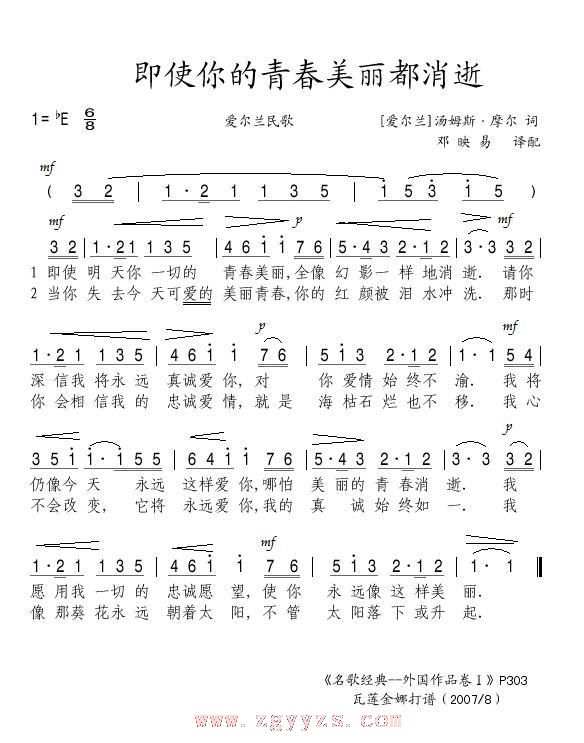 即使你的青春美丽都消逝
1=♭E 6/8 爱尔兰民歌 [爱尔兰]汤姆斯·摩尔 词
邓映易 译配
mf
( 3 2 | 1·2 1 1 3 5 | 1 5 3 1 5 )
mf p mf
3 2 | 1·2 1 1 3 5 | 4 6 1 1 7 6 | 5·4 3 2·1 2 | 3·3 3 2 |
1 即使 明天你 一切的 青春美丽,全像 幻影一样地消逝. 请你
2 当你 失去今天可爱的 美丽青春,你的 红颜被泪水冲洗. 那时
p mf
1·2 1 1 3 5 | 4 6 1 1 7 6 | 5 1 3 2·1 2 | 1·1 5 4 |
深信我将永远 真诚爱你,对 你爱情始终不渝. 我将
你会相信我的 忠诚爱情,就是 海枯石烂也不移. 我心
p
3 5 1 1·1 5 5 | 6 4 1 1 7 6 | 5·4 3 2·1 2 | 3·3 3 2 |
仍像今天 永远 这样爱你,哪怕 美丽的青春消逝. 我
不会改变,它将 永远爱你,我的 真诚始终如一. 我
mf
1·2 1 1 3 5 | 4 6 1 1 7 6 | 5 1 3 2·1 2 | 1·1
愿用我一切的 忠诚愿望,使你 永远像这样美丽.
像那葵花永远 朝着太阳,不管 太阳落下或升起.
《名歌经典--外国作品卷Ⅰ》P303
瓦莲金娜打谱(2007/8)
www.zgyyzs.com